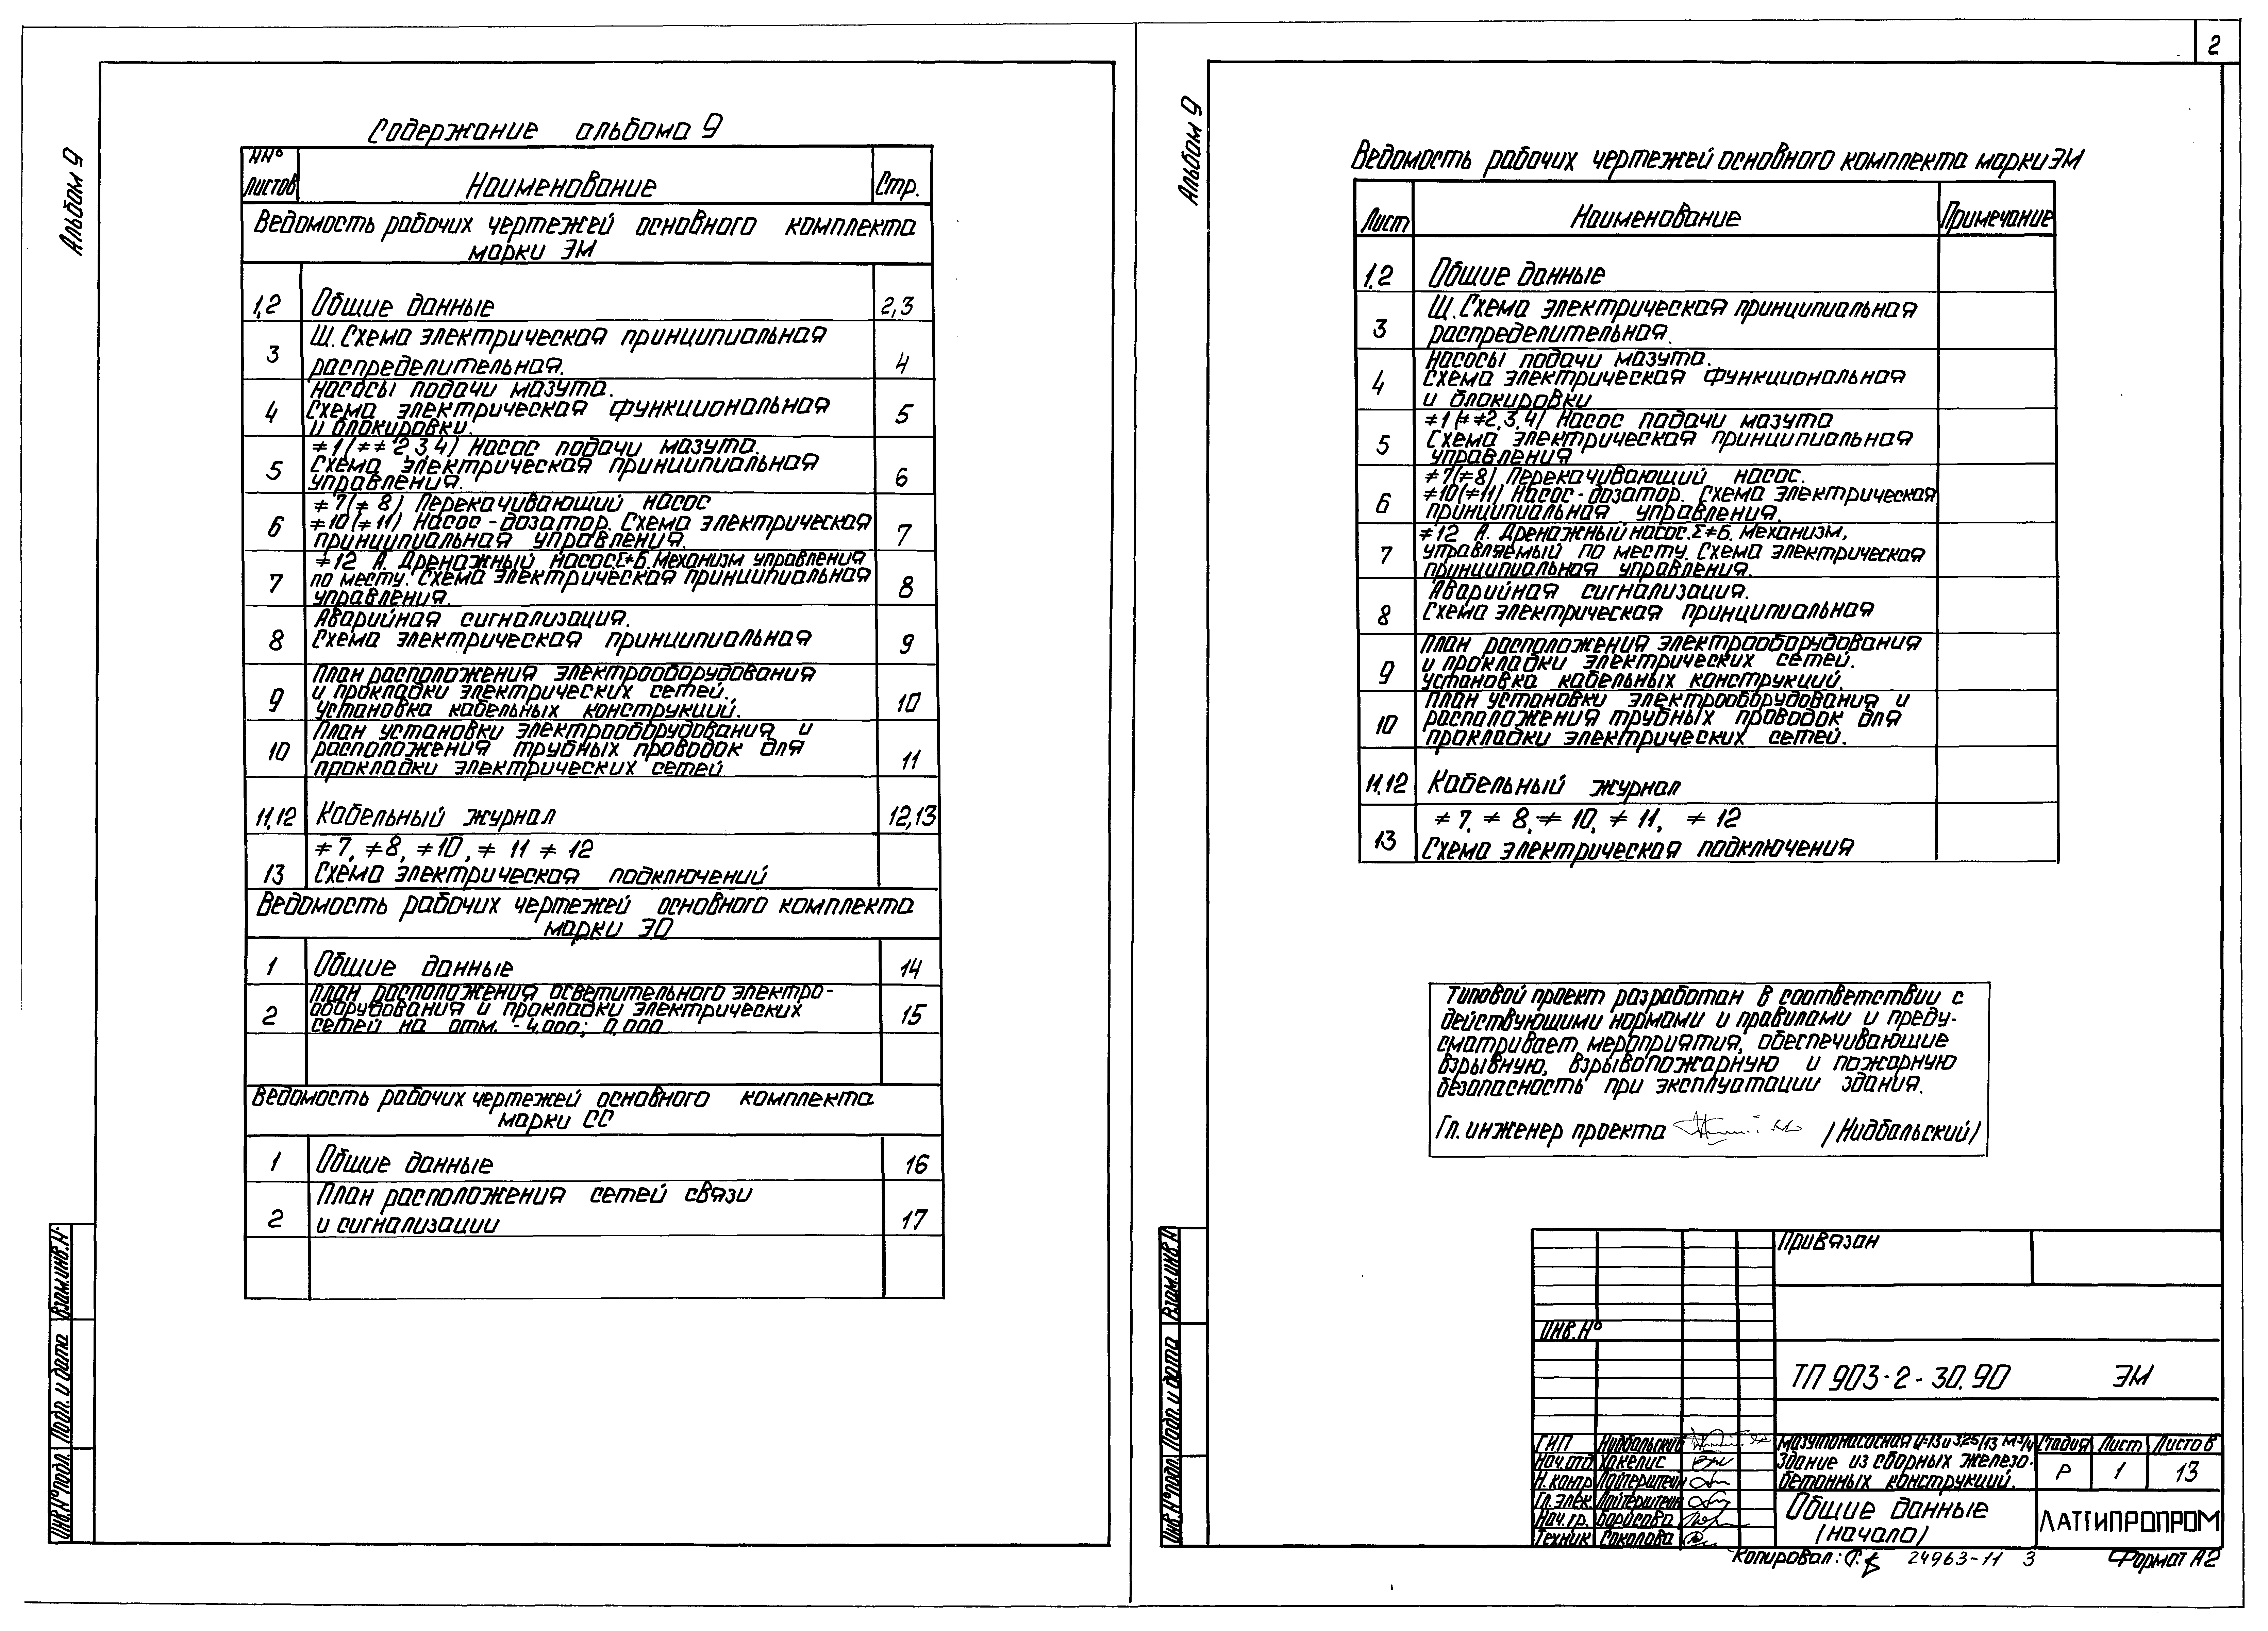 2
Альбом 9
Содержание альбома 9
NN° листов
Наименование
Стр.
Ведомость рабочих чертежей основного комплекта
марки ЭМ
1,2
Общие данные
2,3
3
Щ. Схема электрическая принципиальная
распределительная.
4
4
Насосы подачи мазута.
Схема электрическая функциональная
и блокировки.
5
5
≠1(≠≠ 2,3,4) Насос подачи мазута.
Схема электрическая принципиальная
управления.
6
6
≠7(≠8) Перекачивающий насос
≠10(≠11) Насос-дозатор. Схема электрическая
принципиальная управления.
7
7
≠12 А. Дренажный насос.Σ≠Б. Механизм управления
по месту. Схема электрическая принципиальная
управления.
8
8
Аварийная сигнализация.
Схема электрическая принципиальная
9
9
План расположения электрооборудования
и прокладки электрических сетей.
установка кабельных конструкций.
10
10
План установки электрооборудования и
расположения трубных проводок для
прокладки электрических сетей
11
11,12
Кабельный журнал
12,13
13
≠7, ≠8, ≠10, ≠ 11 ≠ 12
Схема электрическая подключений
Ведомость рабочих чертежей основного комплекта
марки ЭО
1
Общие данные
14
2
План расположения осветительного электро-
оборудования и прокладки электрических
сетей на отм. -4,000; 0,000
15
Ведомость рабочих чертежей основного комплекта
марки СС
1
Общие данные
16
2
План расположения сетей связи
и сигнализации
17
Взам.инв.N°
Подп. и дата
Инв.N°подл.
Альбом 9
Ведомость рабочих чертежей основного комплекта марки ЭМ
Лист
Наименование
Примечание
1,2
Общие данные
3
Щ. Схема электрическая принципиальная
распределительная.
4
Насосы подачи мазута.
Схема электрическая функциональная
и блокировки
5
≠1(≠≠2,3,4) Насос подачи мазута
Схема электрическая принципиальная
управления
6
≠7(≠8) Перекачивающий насос.
≠10(≠11) Насос-дозатор. Схема электрическая
принципиальная управления.
7
≠12 А. Дренажный насос.Σ≠Б. Механизм,
управляемый по месту. Схема электрическая
принципиальная управления.
8
Аварийная сигнализация.
Схема электрическая принципиальная
9
План расположения электрооборудования
и прокладки электрических сетей.
установка кабельных конструкций.
10
План установки электрооборудования и
расположения трубных проводок для
прокладки электрических сетей.
11,12
Кабельный журнал
13
≠7, ≠8, ≠10, ≠11, ≠12
Схема электрическая подключения
Типовой проект разработан в соответствии с
действующими нормами и правилами и преду-
сматривает мероприятия, обеспечивающие
взрывную, взрывопожарную и пожарную
безопасность при эксплуатации здания.
Гл. инженер проекта /Нидбальский/
Взам.инв.N
Подп. и дата
Инв.N°подл.
Привязан
Инв.N°
ТП 903-2-30.90 ЭМ
ГИП Нидбальский
Нач.отд. Хакелис
Н.контр Лойтерштейн
Гл.элек. Лойтерштейн
Нач.гр. Борисова
Техник Соколова
Мазутонасосная Ц=13 и 3,25/13 м³/ч
Здание из сборных железо-
бетонных конструкций.
Стадия Лист Листов
Р 1 13
Общие данные
(начало)
ЛАТГИПРОПРОМ
Копировал: 24963-11 3 Формат А2